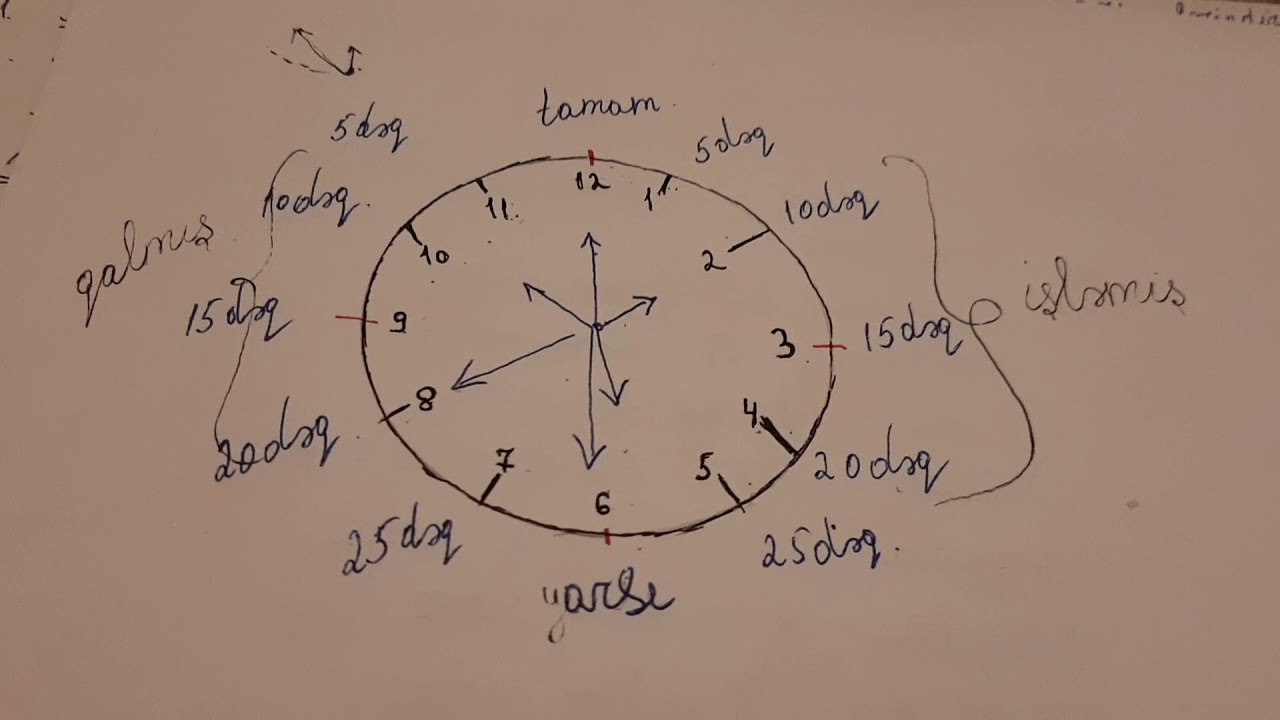 tamam
5dəq
5dəq
12
11
1
10dəq.
10dəq
10
2
qalmış
işləmiş
15dəq
9
3
15dəq
8
4
20dəq.
20dəq
7
5
6
25dəq
25dəq.
yarısı